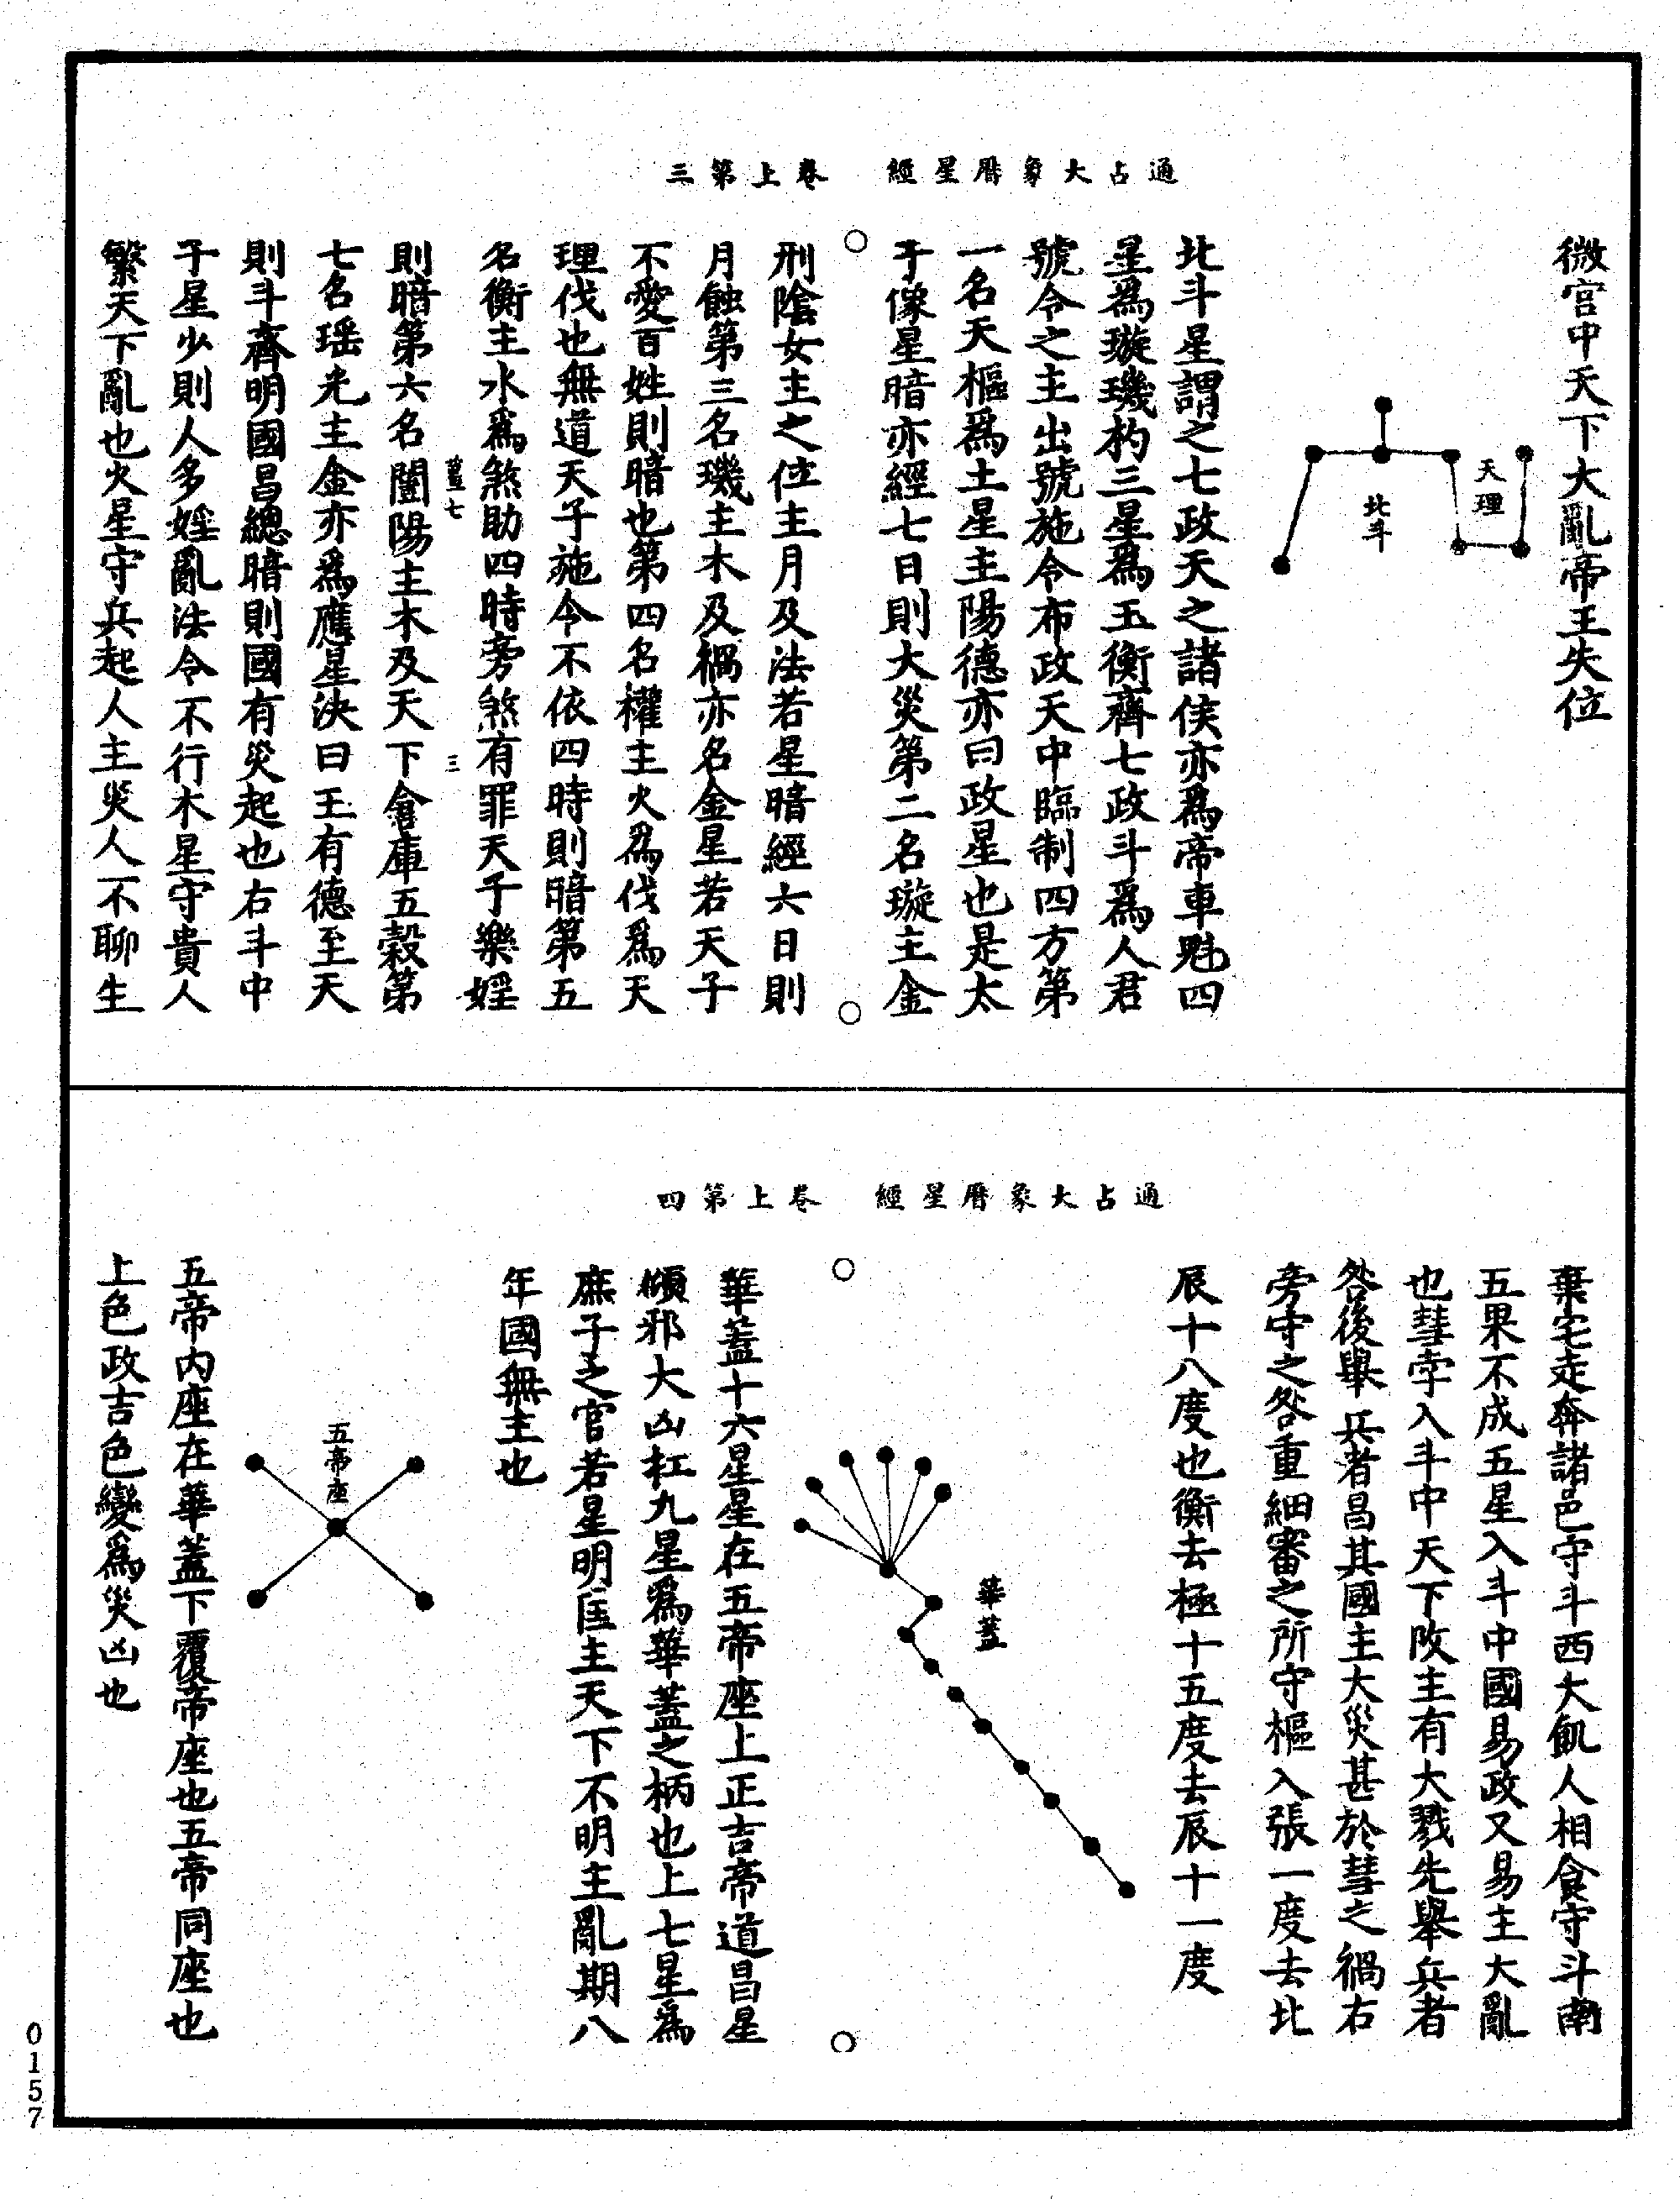 通占大象曆星經　卷上第三
微宮中天下大亂帝王失位
天理
北斗
北斗星謂之七政天之諸侯亦爲帝車魁四
星爲璇璣杓三星爲玉衡齊七政斗爲人君
號令之主出號施令布政天中臨制四方第
一名天樞爲土星主陽德亦曰政星也是太
子像星暗亦經七日則大災第二名璇主金
刑陰女主之位主月及法若星暗經六日則
月蝕第三名璣主木及禍亦名金星若天子
不愛百姓則暗也第四名權主火爲伐爲天
理伐也無道天子施令不依四時則暗第五
名衡主水爲煞助四時旁煞有罪天子樂婬
三
則暗第六名闓陽主木及天下倉庫五穀第
七名瑶光主金亦爲應星決曰王有德至天
則斗齊明國昌總暗則國有災起也右斗中
子星少則人多婬亂法令不行木星守貴人
繁天下亂也火星守兵起人主災人不聊生
通占大象曆星經　卷上第四
棄宅走奔諸邑守斗西大飢人相食守斗南
五果不成五星入斗中國易政又易主大亂
也彗孛入斗中天下改主有大戮先舉兵者
咎後舉兵者昌其國主大災甚於彗之禍右
旁守之咎重細審之所守樞入張一度去北
辰十八度也衡去極十五度去辰十一度
華蓋
華蓋十六星星在五帝座上正吉帝道昌星
傾邪大凶杠九星爲華蓋之柄也上七星爲
庶子之官若星明匡主天下不明主亂期八
年國無主也
五帝座
五帝内座在華蓋下覆帝座也五帝同座也
上色政吉色變爲災凶也
0157